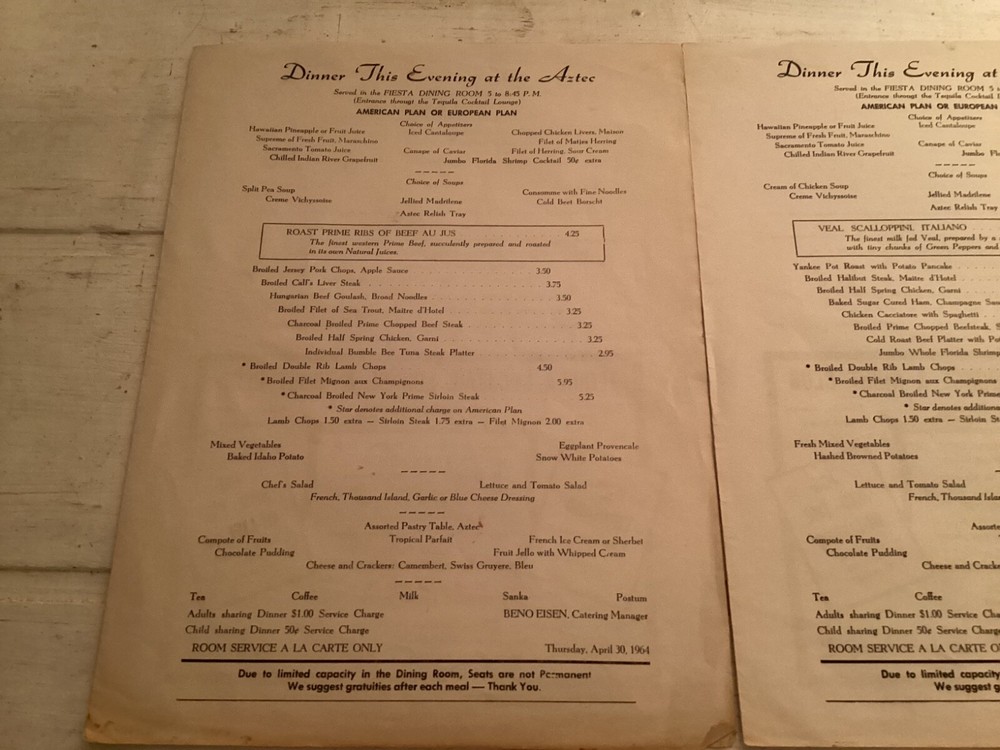 Dinner This Evening at the Aztec
Served in the FIESTA DINING ROOM 5 to 8:45 P. M.
(Entrance througt the Tequila Cocktail Lounge)
AMERICAN PLAN OR EUROPEAN PLAN
Choice of Appetizers
Hawaiian Pineapple or Fruit Juice Iced Cantaloupe Chopped Chicken Livers, Maison
Supreme of Fresh Fruit, Maraschino Filet of Matjes Herring
Sacramento Tomato Juice Canape of Caviar Filet of Herring, Sour Cream
Chilled Indian River Grapefruit Jumbo Florida Shrimp Cocktail 50¢ extra
Choice of Soups
Split Pea Soup Consomme with Fine Noodles
Creme Vichyssoise Jellied Madrilene Cold Beet Borscht
Aztec Relish Tray
ROAST PRIME RIBS OF BEEF AU JUS 4.25
The finest western Prime Beef, succulently prepared and roasted
in its own Natural Juices.
Broiled Jersey Pork Chops, Apple Sauce 3.50
Broiled Calf's Liver Steak 3.75
Hungarian Beef Goulash, Broad Noodles 3.50
Broiled Filet of Sea Trout, Maitre d'Hotel 3.25
Charcoal Broiled Prime Chopped Beef Steak 3.25
Broiled Half Spring Chicken, Garni 3.25
Individual Bumble Bee Tuna Steak Platter 2.95
* Broiled Double Rib Lamb Chops 4.50
* Broiled Filet Mignon aux Champignons 5.95
* Charcoal Broiled New York Prime Sirloin Steak 5.25
* Star denotes additional charge on American Plan
Lamb Chops 1.50 extra — Sirloin Steak 1.75 extra — Filet Mignon 2.00 extra
Mixed Vegetables Eggplant Provencale
Baked Idaho Potato Snow White Potatoes
Chef's Salad Lettuce and Tomato Salad
French, Thousand Island, Garlic or Blue Cheese Dressing
Assorted Pastry Table, Aztec
Compote of Fruits Tropical Parfait French Ice Cream or Sherbet
Chocolate Pudding Fruit Jello with Whipped Cream
Cheese and Crackers: Camembert, Swiss Gruyere, Bleu
Tea Coffee Milk Sanka Postum
Adults sharing Dinner $1.00 Service Charge BENO EISEN, Catering Manager
Child sharing Dinner 50¢ Service Charge
ROOM SERVICE A LA CARTE ONLY Thursday, April 30, 1964
Due to limited capacity in the Dining Room, Seats are not Permanent
We suggest gratuities after each meal — Thank You.
Dinner This Evening at
Served in the FIESTA DINING ROOM 5
(Entrance througt the Tequila Cocktail
AMERICAN PLAN OR EUROPEAN
Choice of Appetizers
Hawaiian Pineapple or Fruit Juice Iced Cantaloupe
Supreme of Fresh Fruit, Maraschino
Sacramento Tomato Juice Canape of Caviar
Chilled Indian River Grapefruit Jumbo
Choice of Soups
Cream of Chicken Soup
Creme Vichyssoise Jellied Madrilene
Aztec Relish Tray
VEAL SCALLOPPINI, ITALIANO
The finest milk fed Veal, prepared by a
with tiny chunks of Green Peppers and
Yankee Pot Roast with Potato Pancake
Broiled Halibut Steak, Maitre d'Hotel
Broiled Half Spring Chicken, Garni
Baked Sugar Cured Ham, Champagne
Chicken Cacciatore with Spaghetti
Broiled Prime Chopped Beefsteak,
Cold Roast Beef Platter with
Jumbo Whole Florida
* Broiled Double Rib Lamb Chops
* Broiled Filet Mignon aux Champignons
* Charcoal Broiled New York Prime
* Star denotes
Lamb Chops 1.50 extra — Sirloin
Fresh Mixed Vegetables
Hashed Browned Potatoes
Lettuce and Tomato Salad
French, Thousand
Compote of Fruits
Chocolate Pudding
Cheese and
Tea Coffee
Adults sharing Dinner $1.00 Service
Child sharing Dinner 50¢ Service
ROOM SERVICE A LA CARTE
Due to limited capacity
We suggest